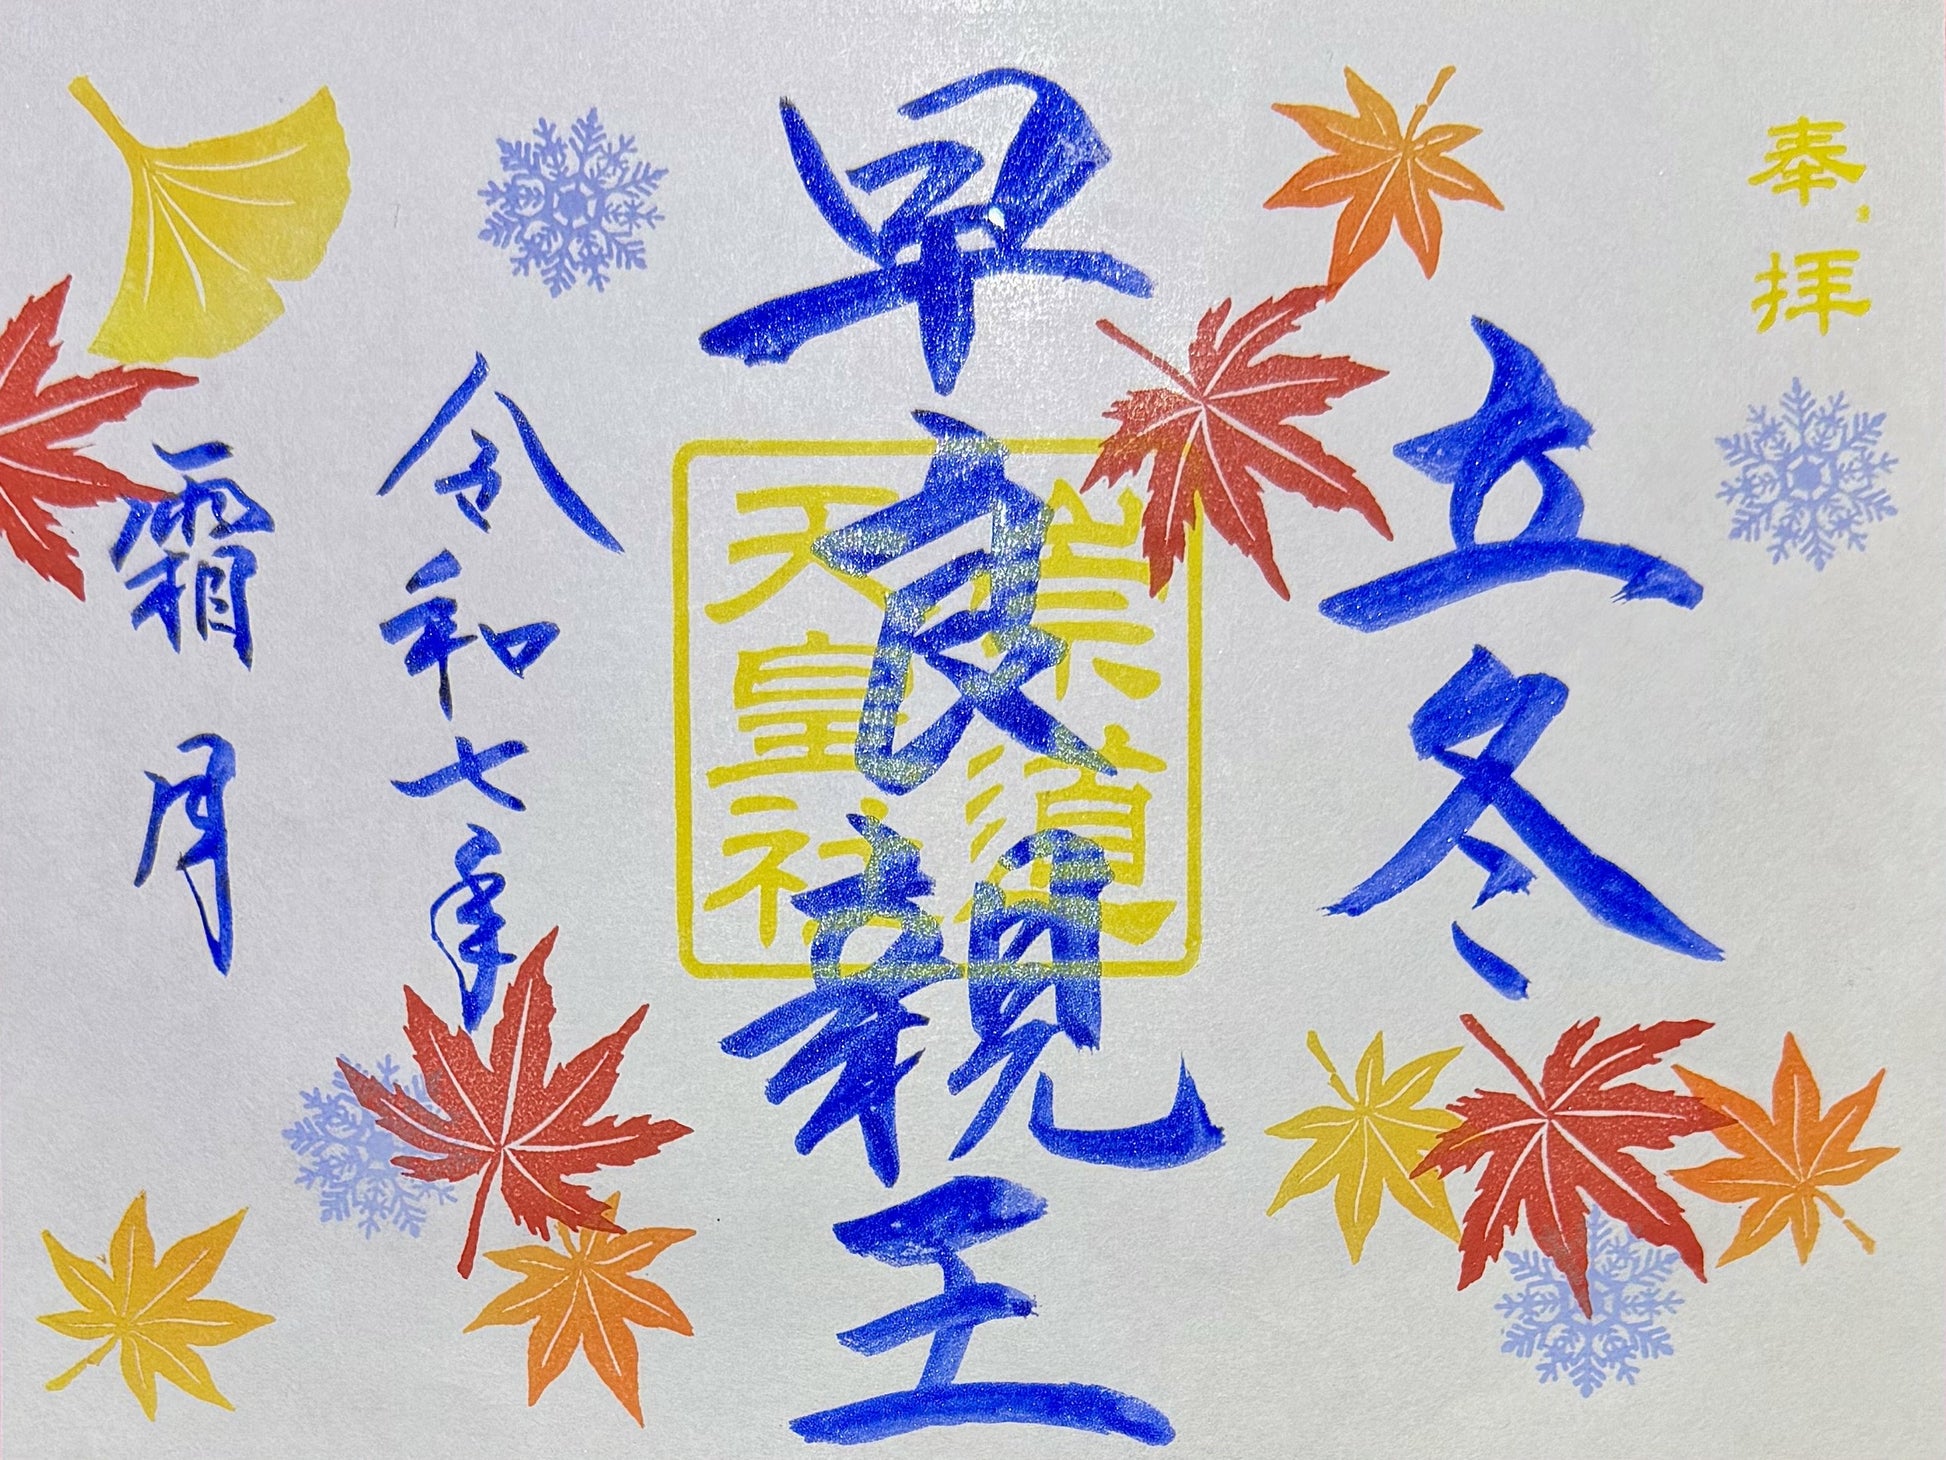 奉拝
立冬
早良親王
崇道
天皇社
令和七年
霜月